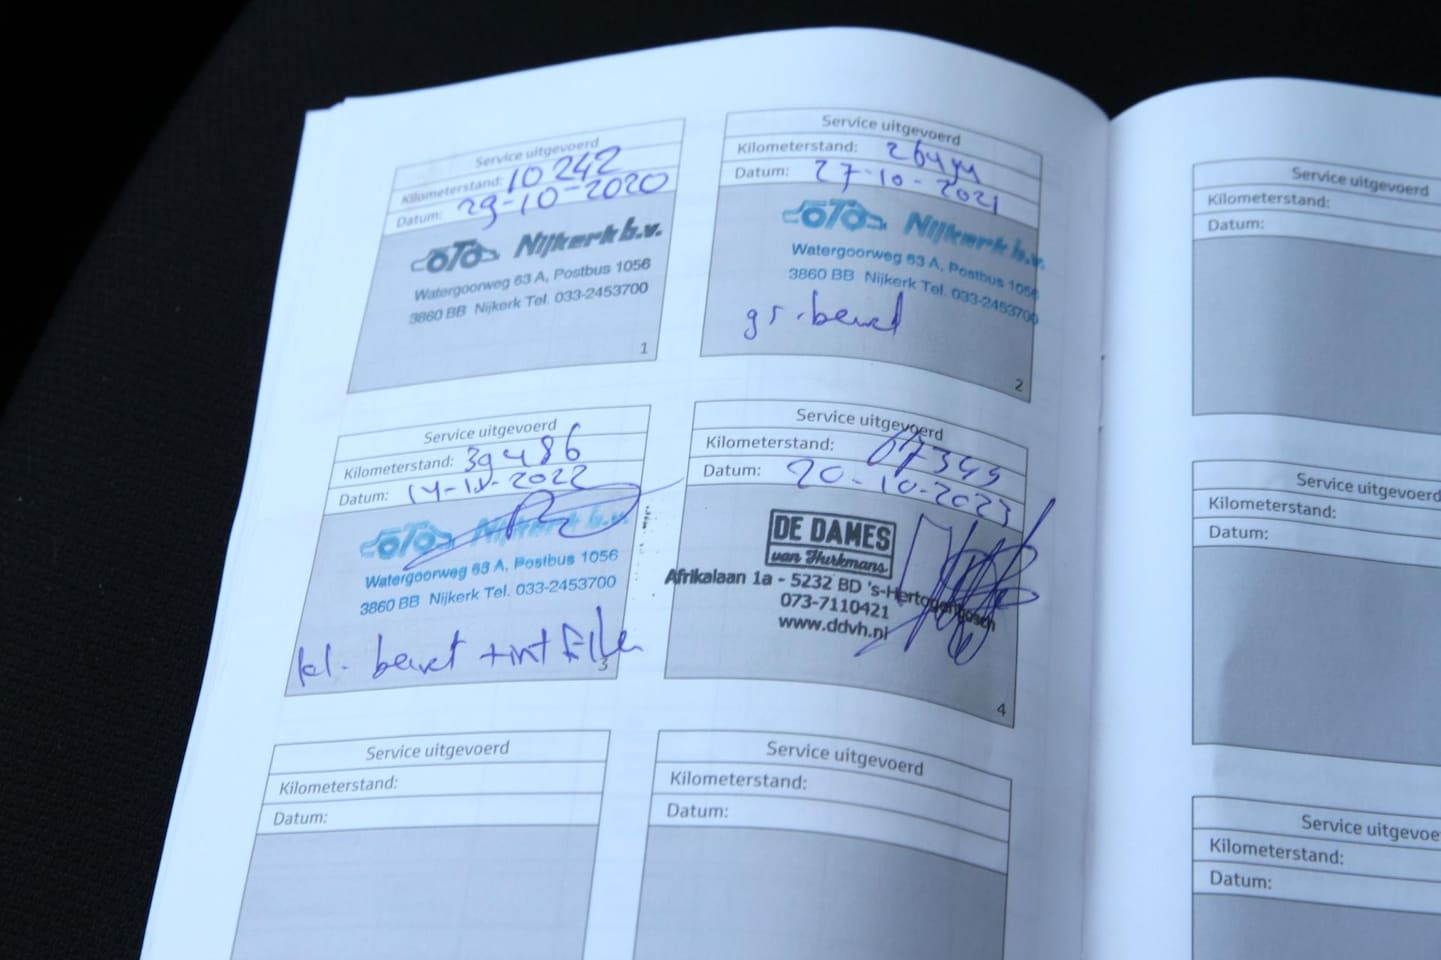 Service uitgevoerd
Kilometerstand: 10242
Datum: 29-10-2020
OTO Nijkerk b.v.
Watergoorweg 63 A, Postbus 1056
3860 BB Nijkerk Tel. 033-2453700
1
Service uitgevoerd
Kilometerstand:
Datum: 27-10-2021
OTO Nijkerk b.v.
Watergoorweg 63 A, Postbus 1056
3860 BB Nijkerk Tel. 033-2453700
gr. beurt
2
Service uitgevoerd
Kilometerstand: 39486
Datum:
OTO Nijkerk b.v.
Watergoorweg 63 A, Postbus 1056
3860 BB Nijkerk Tel. 033-2453700
kl. beurt + int filter
3
Service uitgevoerd
Kilometerstand:
Datum: 20-10-2023
DE DAMES
van Hurkmans
Afrikalaan 1a - 5232 BD 's-Hertogenbosch
073-7110421
www.ddvh.nl
4
Service uitgevoerd
Kilometerstand:
Datum:
Service uitgevoerd
Kilometerstand:
Datum:
Service uitgevoerd
Kilometerstand:
Datum:
Service uitgevoerd
Kilometerstand:
Datum:
Service uitgevoe
Kilometerstand:
Datum: